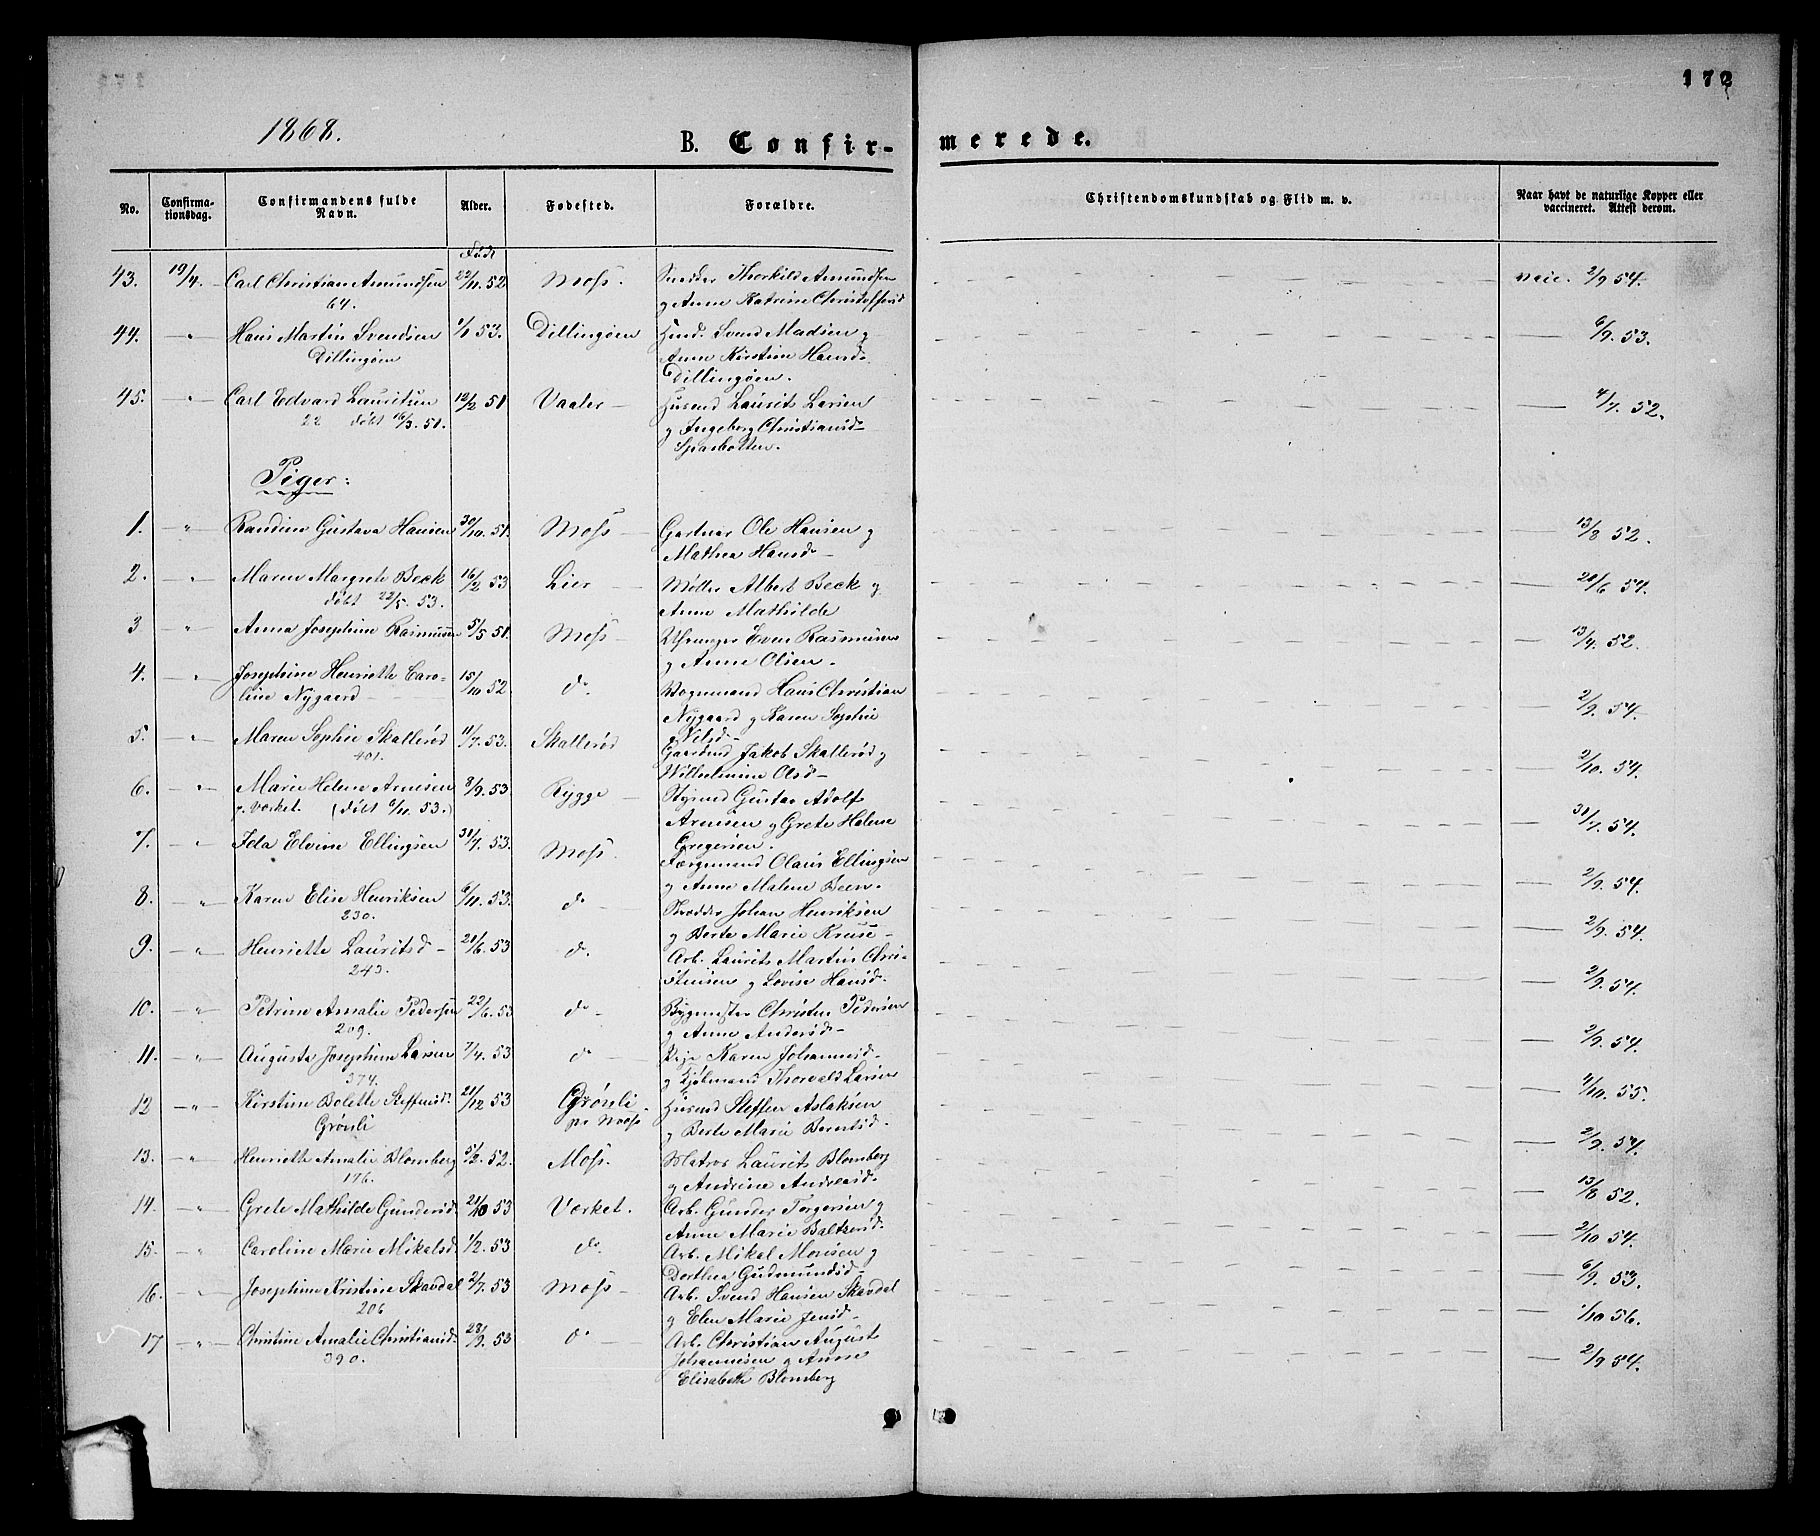 172
1868.
B. Confir-
merede.
No.
Confirma-
tionsdag.
Confirmandens fulde
Navn.
Alder.
Fødested.
Forældre.
Christendomskundskab og Flid m. v.
Naar havt de naturlige Kopper eller
vaccineret. Attest derom.
Født
43. 19/4. Carl Christian Amundsen 22/11. 52 Moss. Snedker Thorkild Amundsen vacc. 2/9 54.
64. og Anne Katrine Christoffersd
44. — " — Hans Martin Svendsen 1/1 53. Dillingøen Husd. Svend Madsen og — 6/9. 53.
Dillingøen Anne Kirstine Hansd.
Dillingøen.
45. — " — Carl Edvard Lauritsen 12/2 51 Vaaler — Husmd Laurits Larsen — 4/7. 52.
22 døbt 16/3. 51. og Ingeborg Christiansd-
Sparbotten.
Piger:
1. — " — Randine Gustava Hansen 30/10. 51. Moss — Gartner Ole Hansen og — 13/8 52.
Mathea Hansd-
2. — " — Maren Margrete Beck 16/2 53 Lier — Møller Albert Beck og — 21/6 54.
døbt 22/5. 53. Anne Mathilde
3 — " — Anna Josephine Rasmussen 5/5 51. Moss — Even Rasmussen — 13/4. 52.
og Anne Olsen.
4. — " — Josephine Henriette Caro- 15/10 52 do. Vognmand Hans Christian — 2/9. 54.
line Nygaard Nygaard og Karen Sophie
Nilsd-
5. — " — Maren Sophie Skallerød 11/7. 53. Skallerød Gaardmd Jakob Skallerød og — 2/10. 54.
401. Wilhelmine Olsd-
6. — " — Marie Helene Arnesen 8/9. 53. Rygge — Styrmd Gustav Adolf — 31/7. 54.
p. Værket. (døbt 6/11. 53.) Arnesen og Grete Helene
Gregersen.
7. — " — Ida Elvine Ellingsen 31/7. 53. Moss. Færgemand Olaus Ellingsen — 2/9. 54.
og Anne Malene Been.
8. — " — Karen Elise Henriksen 6/11. 53. do — Skrædder Johan Henriksen — 2/9. 54.
230. og Berte Marie Kruse-
9. — " — Henriette Lauritsd- 21/6. 53 do. Arb. Laurits Martin Chri- — 2/9. 54.
243. stensen og Lovise Hansd.
10. — " — Petrine Amalie Pedersen 22/6. 53 do- Bygmester Christen Pedersen — 2/9. 54.
209. og Anne Andersd-
11. — " — Augusta Josephine Larsen 7/4. 53 do — Pige Karen Johannesd. — 4/10. 55.
374. og Kjøbmand Thorvald Larsen
12 — " — Kirstine Bolette Steffensd. 21/12 53 Grønli Husmd Steffen Aslaksen — 2/9. 54.
Grønli pr Moss og Berte Marie Berntsd.
13. — " — Henriette Amalie Blomberg 5/2. 52. Moss. Matros Laurits Blomberg — 13/8 52.
176. og Andrine Andreasd.
14. — " — Grete Mathilde Gundersd. 21/10 53 Værket. Arb. Gunder Torgersen og — 2/10 54.
Anne Marie Baltzersd.
15. — " — Caroline Marie Mikalsd 1/2. 53 do. Arb. Mikal Monsen og — 6/9. 53.
Dorthea Gudmundsd-
16. — " — Josephine Kristine Skavdal 2/7. 53 Moss — Arb. Svend Hansen Skavdal — 1/10 56.
206 og Elen Marie Jensd-
17 — " — Christine Amalie Christiansd. 28/9. 53 do — Arb. Christian August — 2/9 54.
390. Johannesen og Anne
Elisabeth Blomberg